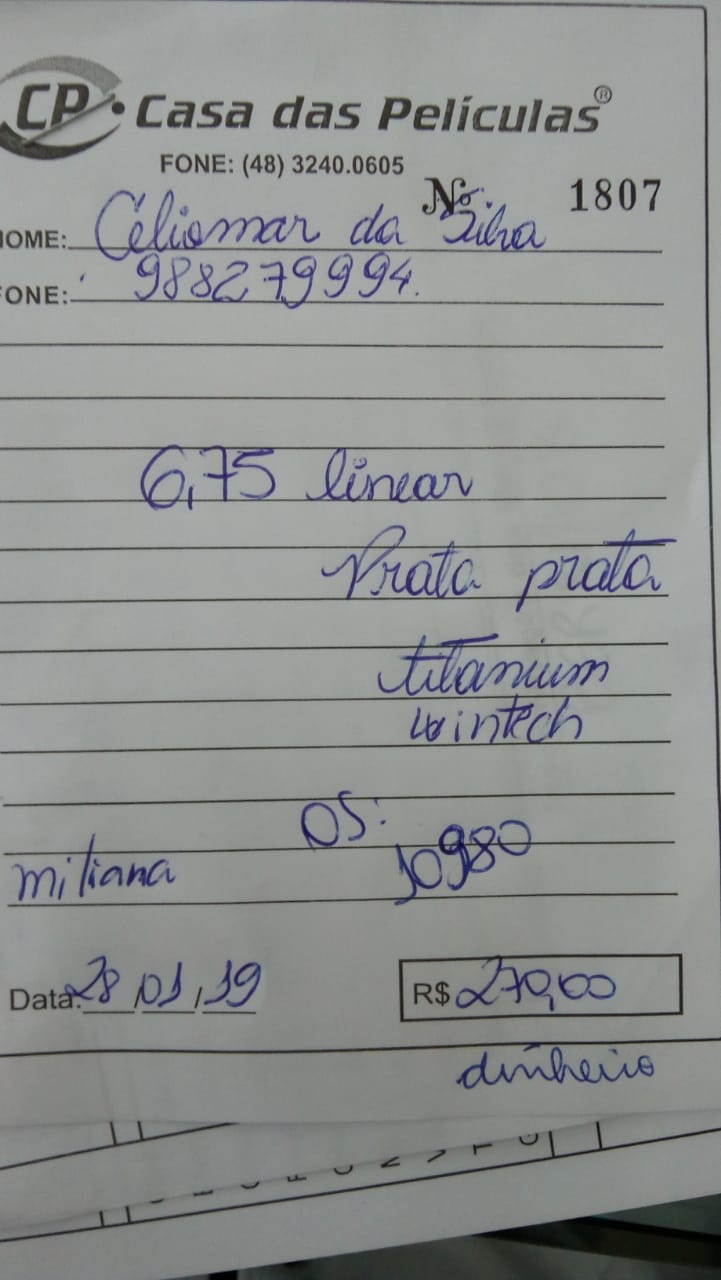 CP. Casa das Películas®
FONE: (48) 3240.0605
Nº 1807
NOME: Céliomar da Silva
FONE: 988279994.
6,75 linear
Prata prata
titanium
wintech
OS:
10980
miliana
Data: 28/01/19 R$ 270,00
dinheiro